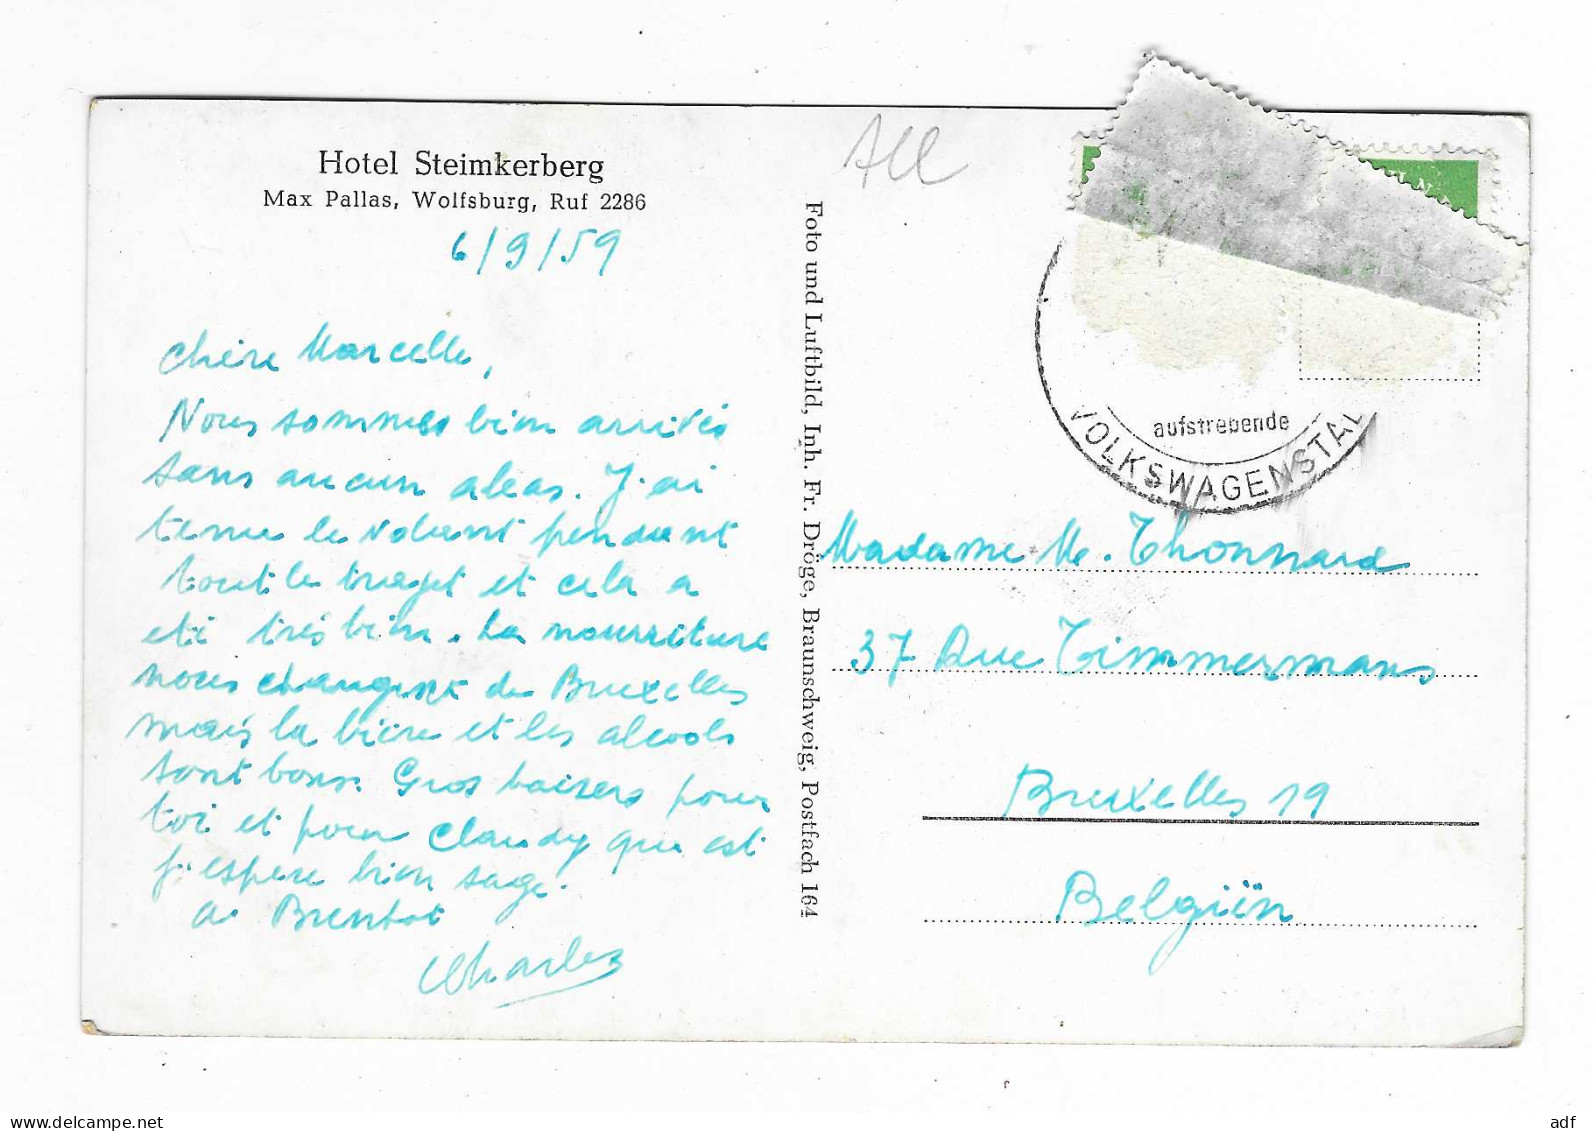 Hotel Steimkerberg
Max Pallas, Wolfsburg, Ruf 2286
6/9/59
Chère Marcelle,
Nous sommes bien arrivés
sans aucun aleas. J'ai
tenu le volant pendant
tout le trajet et cela a
eté très bien. La nourriture
nous changent de Bruxelles
mais la bière et les alcools
sont bons. Gros baisers pour
toi et pour Claudy qui est
j'espère bien sage.
A Bientot
Charles
Foto und Luftbild, Inh. Fr. Dröge, Braunschweig, Postfach 164
All
aufstrebende
VOLKSWAGENSTAD
Madame M. Thonnard
37 Rue Timmermans
Bruxelles 19
Belgiën
www.delcampe.net
adf